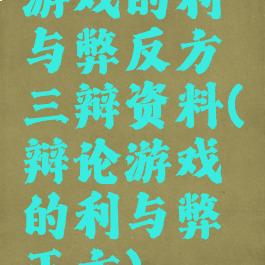 游戏的利
与弊反方
三辩资料(
辩论游戏
的利与弊
正方)